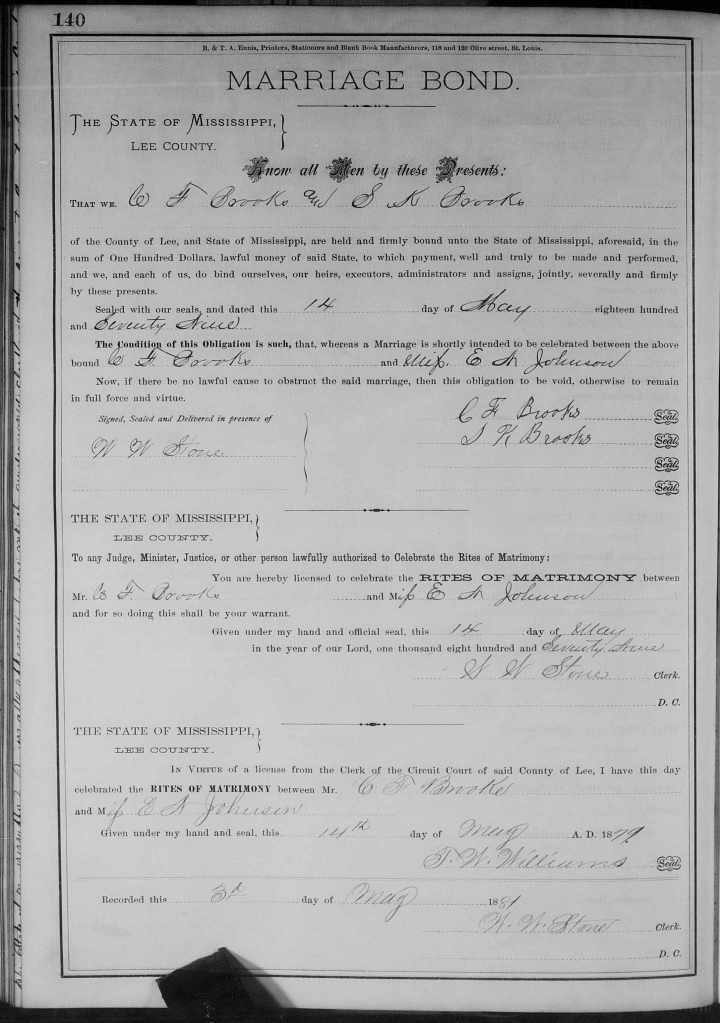 140
R. & T. A. Ennis, Printers, Stationers and Blank Book Manufacturers, 118 and 120 Olive street, St. Louis.
MARRIAGE BOND.
THE STATE OF MISSISSIPPI,
LEE COUNTY.
Know all Men by these Presents:
THAT WE. C F Brooks and S K Brooks
of the County of Lee, and State of Mississippi, are held and firmly bound unto the State of Mississippi, aforesaid, in the
sum of One Hundred Dollars, lawful money of said State, to which payment, well and truly to be made and performed,
and we, and each of us, do bind ourselves, our heirs, executors, administrators and assigns, jointly, severally and firmly
by these presents.
Sealed with our seals, and dated this 14 day of May eighteen hundred
and Seventy Nine
The Condition of this Obligation is such, that, whereas a Marriage is shortly intended to be celebrated between the above
bound C F. Brooks and Miss. E A Johnson
Now, if there be no lawful cause to obstruct the said marriage, then this obligation to be void, otherwise to remain
in full force and virtue.
Signed, Sealed and Delivered in presence of
C F Brooks Seal.
W W Stone
S K Brooks Seal.
Seal.
Seal.
THE STATE OF MISSISSIPPI,
LEE COUNTY.
To any Judge, Minister, Justice, or other person lawfully authorized to Celebrate the Rites of Matrimony:
You are hereby licensed to celebrate the RITES OF MATRIMONY between
Mr. C F. Brooks and Miss E A Johnson
and for so doing this shall be your warrant.
Given under my hand and official seal, this 14 day of May
in the year of our Lord, one thousand eight hundred and Seventy Nine
W W Stone Clerk.
D. C.
THE STATE OF MISSISSIPPI,
LEE COUNTY.
IN VIRTUE of a license from the Clerk of the Circuit Court of said County of Lee, I have this day
celebrated the RITES OF MATRIMONY between Mr. C F Brooks
and Miss E A Johnson
Given under my hand and seal, this 14th day of May A. D. 1879
T. W. Williams Seal.
Recorded this 3d day of May 1881
W. W. Stone Clerk.
D. C.